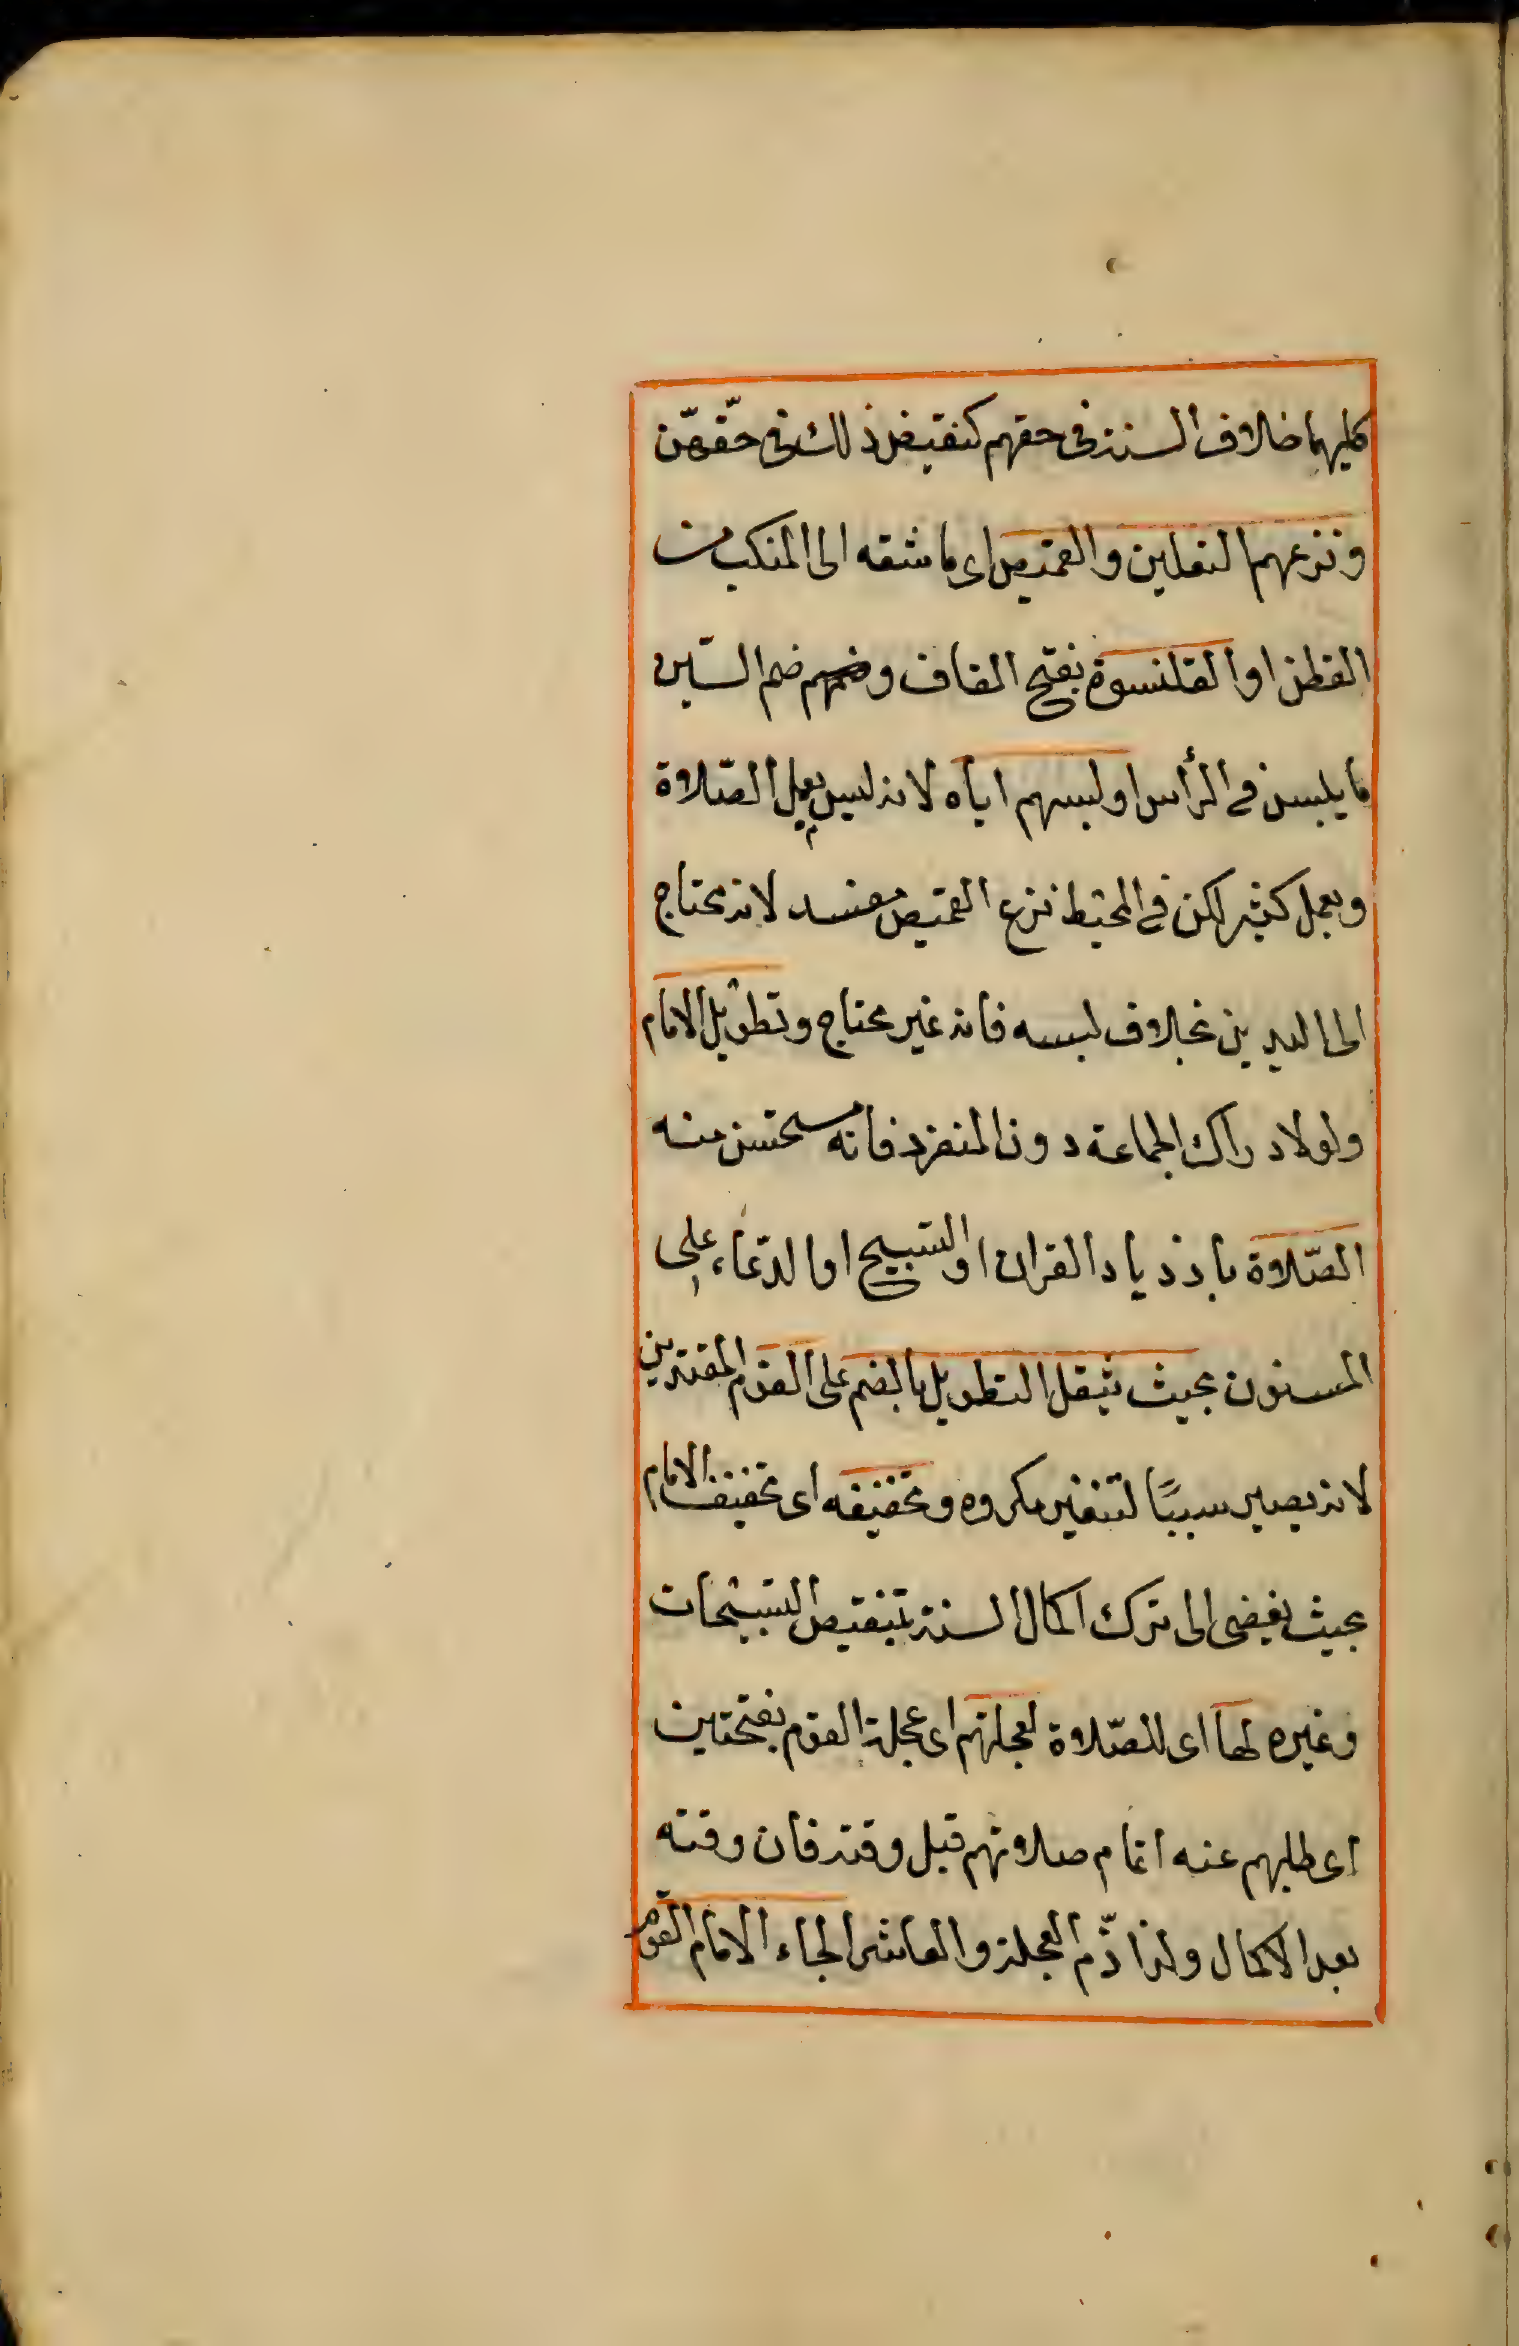 كليهما خلاف السنة في حقهم كنقيض ذلك في حقّهنّ
ونزعهم النعلين والقميص اى ما شقه الى المنكب من
القطن او القلنسوة بفتح القاف وضم السّين
ما يلبس في الرأس او لبسهم اياه لانه ليس بعمل الصّلاة
وبعمل كثير لكن في المحيط نزع القميص مفسد لانه محتاج
الى اليدين بخلاف لبسه فانه غير محتاج وتطويل الامام
ولو لادراك الجماعة دون المنفرد فانه مستحسن منه
الصّلاة بازدياد القران او التسبيح او الدّعاء على
المسنون بحيث يثقل التطويل بالضم على القوم المقتدين
لانه يصير سببًا لتنفير مكروه وتخفيفه اى تخفيف الامام
بحيث يفضى الى ترك اكمال السنة بتنقيص التسبيحات
وغيره لها اى للصّلاة لعجلتهم اى عجلة القوم بفتحتين
اى طلبهم عنه اتمام صلاتهم قبل وقته فان وقته
بعد الاكمال ولذا ذّم العجلة والعاشر الجاء الامام القوم